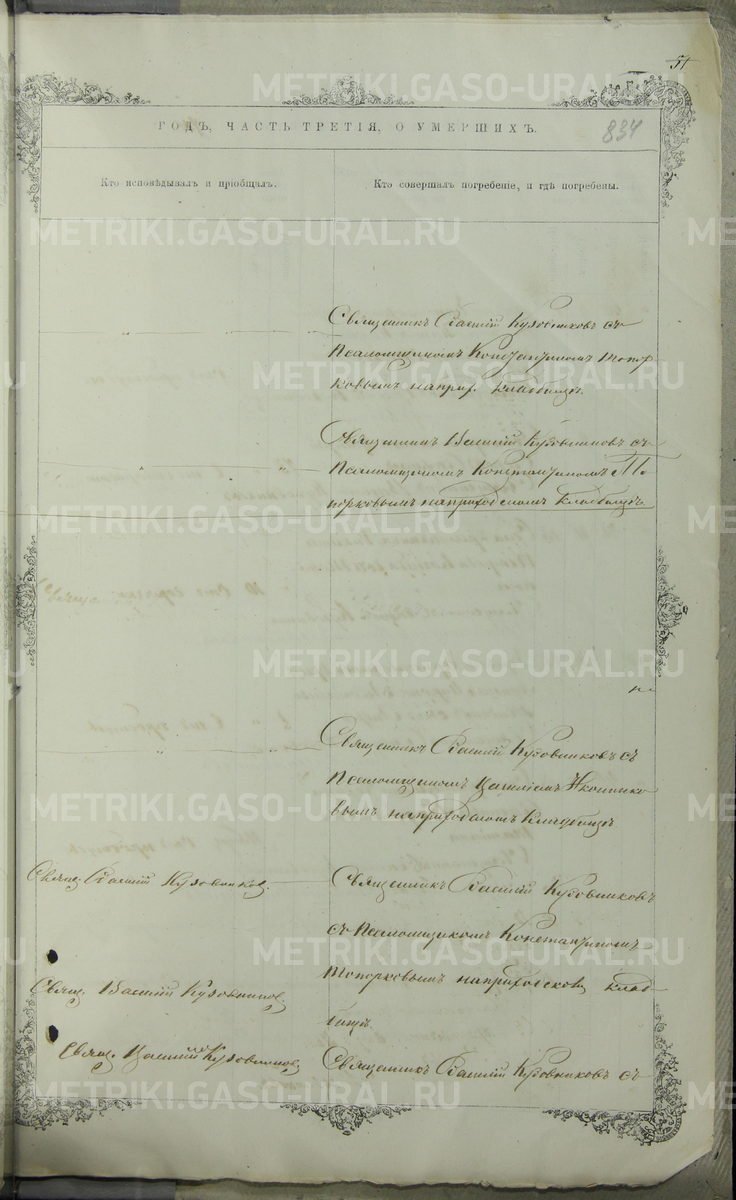 51
834
ГОДЪ, ЧАСТЬ ТРЕТІЯ, О УМЕРШИХЪ.
Кто исповѣдывалъ и пріобщалъ.
Кто совершалъ погребеніе, и гдѣ погребены.
Священникъ Василій Кузовниковъ съ
Псаломщикомъ Константиномъ Топор
ковымъ на прих. кладбищѣ.
Священникъ Василій Кузовниковъ съ
Псаломщикомъ Константиномъ То
порковымъ на приходскомъ кладбищѣ.
Священникъ Василій Кузовниковъ съ
Псаломщикомъ
вымъ на приходскомъ кладбищѣ
Свящ. Василій Кузовниковъ.
Священникъ Василій Кузовниковъ
съ Псаломщикомъ Константиномъ
Топорковымъ на приходскомъ клад
бищѣ.
Свящ. Василій Кузовниковъ.
Свящ. Василій Кузовниковъ
Священникъ Василій Кузовниковъ съ
METRIKI.GASO-URAL.RU